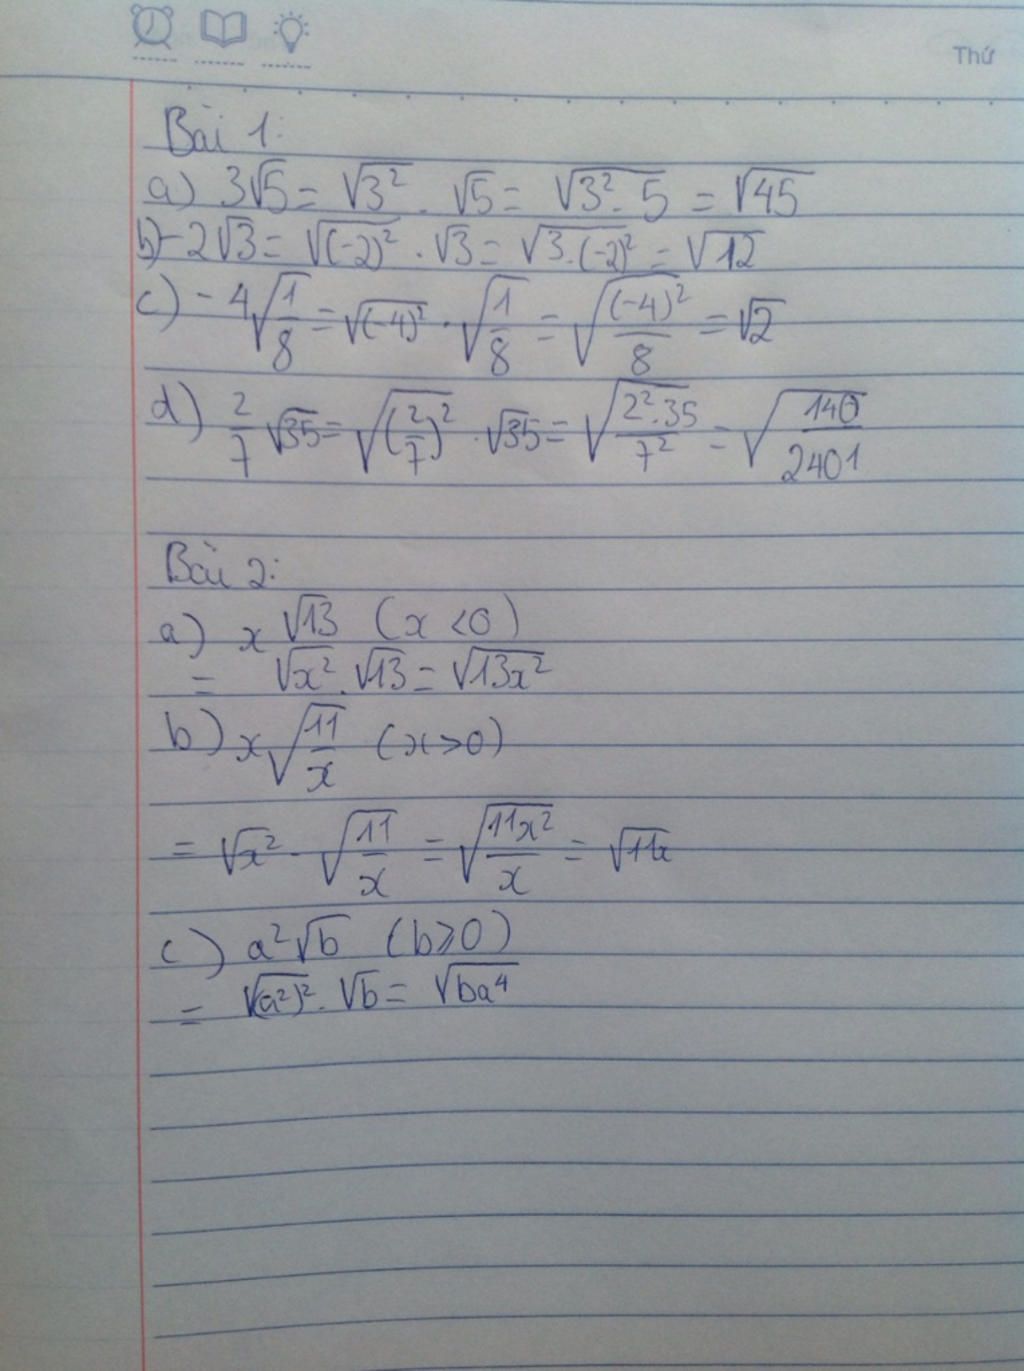 Thứ
Bài 1:
a) 3√5 = √3² . √5 = √3² . 5 = √45
b) -2√3 = √(-2)² . √3 = √3.(-2)² = √12
c) -4√1/8 = √(-4)² . √1/8 = √(-4)²/8 = √2
d) 2/7 √35 = √(2/7)² . √35 = √2².35/7² = √140/2401
Bài 2:
a) x √13 (x < 0)
= √x² . √13 = √13x²
b) x√11/x (x > 0)
= √x² . √11/x = √11x²/x = √11x
c) a²√b (b ⩾ 0)
= √(a²)² . √b = √ba⁴